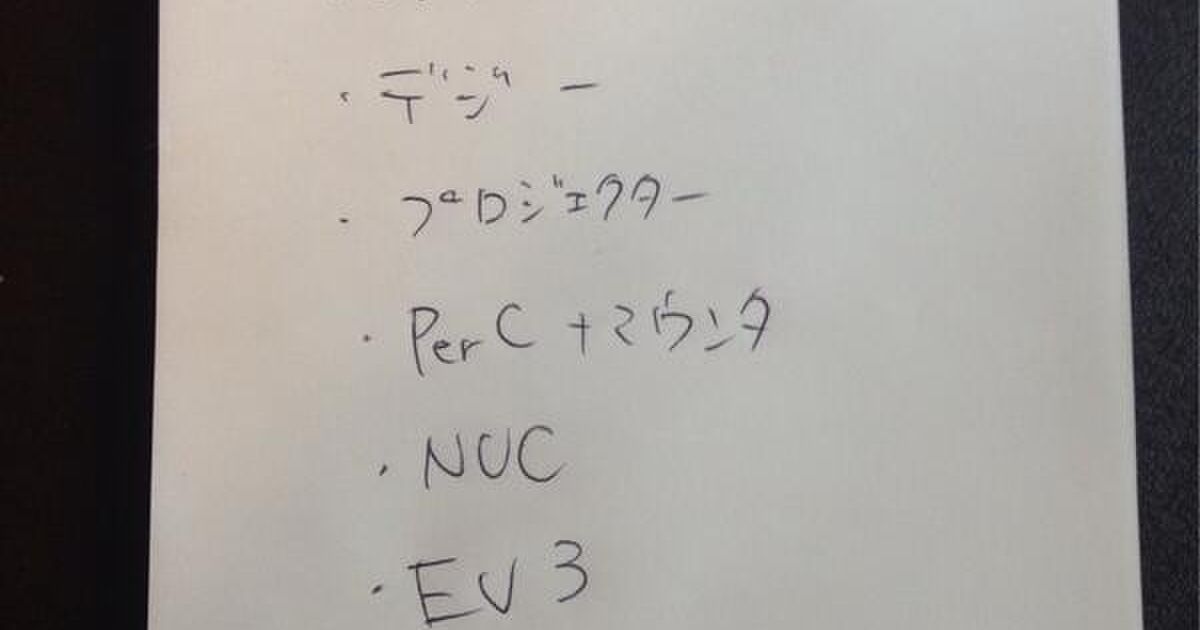 ・デジー
・プロジェクター
・PerC +マウンタ
・NUC
・EV3